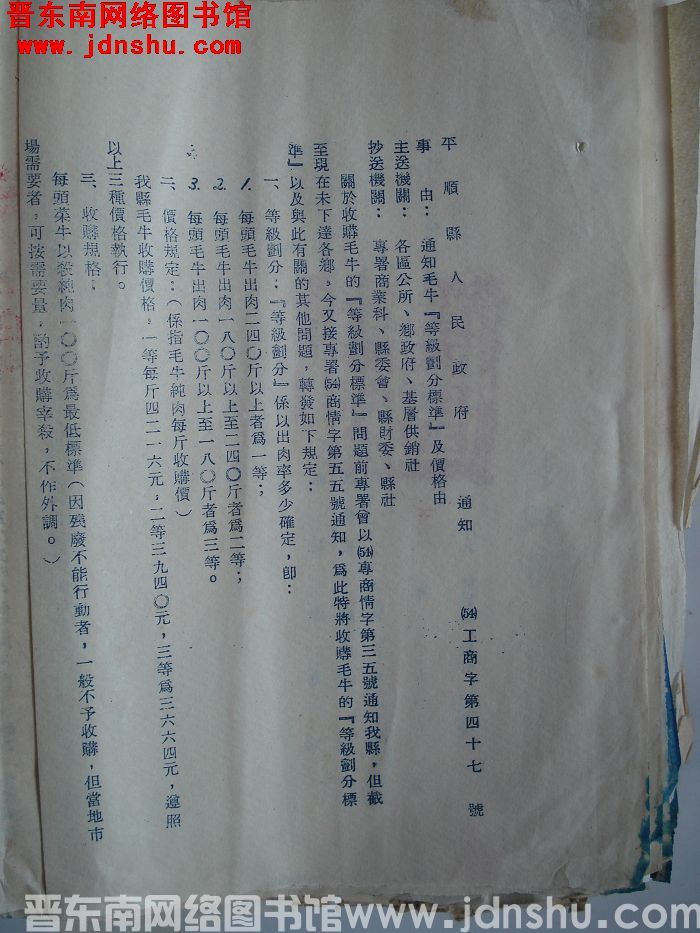 晋东南网络图书馆
www.jdnshu.com
平順縣人民政府 通知 (54)工商字第四十七號
事由：通知毛牛『等級劃分標準』及價格由
主送機關：各區公所、鄉政府、基層供銷社
抄送機關：專署商業科、縣委會、縣財委、縣社
關於收購毛牛的『等級劃分標準』問題前專署曾以(54)專商情字第三五號通知我縣，但截
至現在未下達各鄉，今又接專署(54)商情字第五五號通知，爲此特將收購毛牛的『等級劃分標
準』以及與此有關的其他問題，轉發如下規定：
一、等級劃分：『等級劃分』係以出肉率多少確定，卽：
1. 每頭毛牛出肉二四〇斤以上者爲一等；
2. 每頭毛牛出肉一八〇斤以上至二四〇斤者爲二等；
3. 每頭毛牛出肉一〇〇斤以上至一八〇斤者爲三等。
二、價格規定：（係指毛牛純肉每斤收購價）
我縣毛牛收購價格，一等每斤四二一六元，二等三九四〇元，三等爲三六六四元，遵照
以上三種價格執行。
三、收購規格：
每頭菜牛以殺純肉一〇〇斤爲最低標準（因殘廢不能行動者，一般不予收購，但當地市
場需要者，可按需要量，酌予收購宰殺，不作外調。）
晋东南网络图书馆www.jdnshu.com